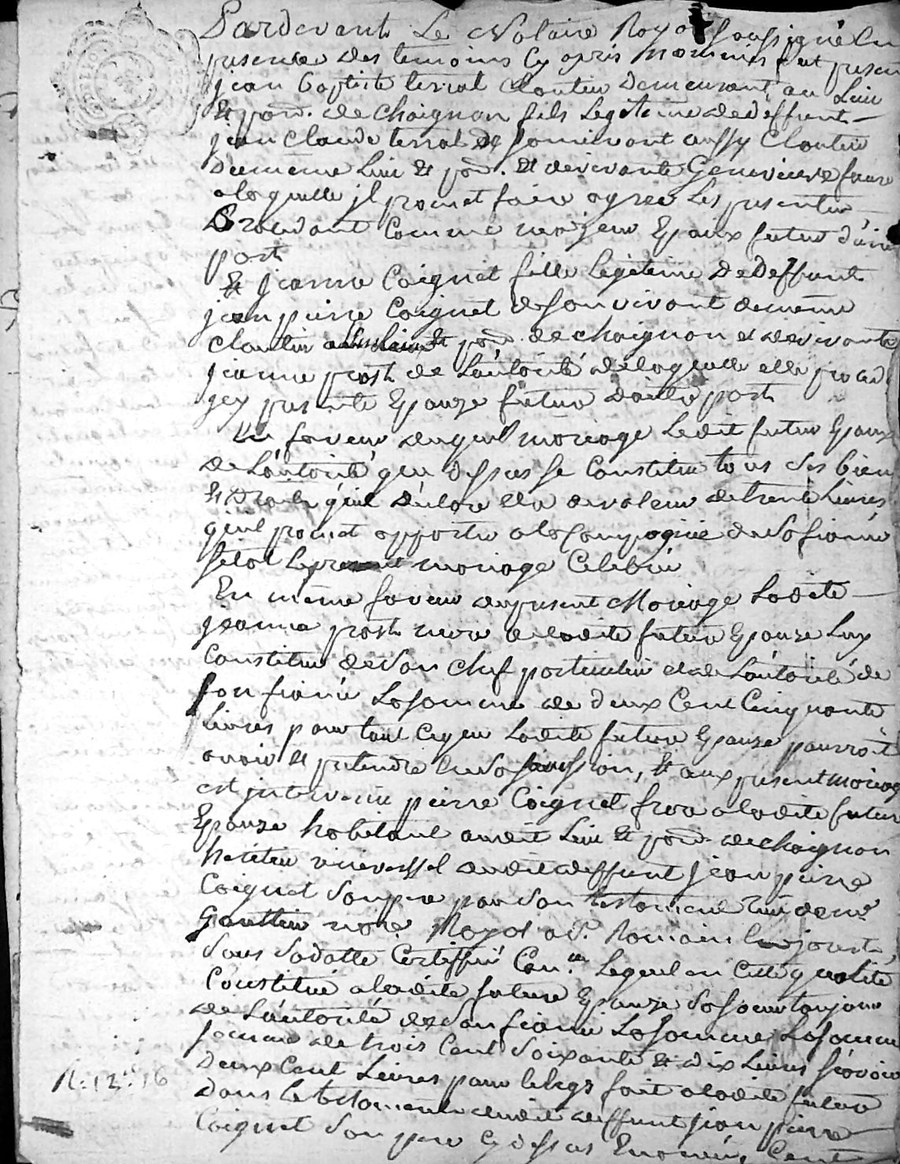 Pardevant Le Notaire Royal soussigné En
presence des temoins cy apres nommés fut present
jean baptiste terrat Cloutier demeurant au Lieu
& par. de chaignon fils Legitime de deffunt
jean Claude terrat de son vivant aussy Cloutier
du meme Lieu & par. & de vivante Genevieve faure
a laquelle il promet faire agreer Les presentes
procedant Comme majeur Epoux futur d'une
part
& Jeanne Coignet fille Legitime de Deffunt
jean pierre Coignet de son vivant de meme
Cloutier au Lieu & par. de chaignon & de vivante
jeanne prost de L'autorité de laquelle elle proced
icy presente Epouze future d'autre part
En faveur duquel mariage Le dit futur Epoux
de L'autorité que dessus se Constitue tous ses bien
& droits qu'il declare etre de valeur de trente Livres
qu'il promet apporter a la Compagnie de sa fiancée
sitot Le present mariage Celebré
En même faveur du present Mariage Ladite
jeanne prost mere a ladite future Epouze Luy
Constitue de son chef particulier et de L'autorité de
son fiancé La somme de deux Cent Cinquante
Livres pour tout Ce que Ladite future Epouze pourroit
avoir & pretendre en sa succession, & aux present mariage
est intervenu pierre Coignet frere a ladite future
Epouze habitant audit Lieu & par. de chaignon
heritier universel dudit deffunt jean pierre
Coignet son pere par son testament reçu de me
notre Royal a St. Romain En jarest
sous sa datte Certiffié Con.lé Lequel en Cette qualité
Constitue a ladite future Epouze sa soeur toujours
de L'autorité de son fiancé La somme La somme
somme de trois Cent Soixante & dix Livres sçavoir
deux Cent Livres pour le legs fait a ladite future
dans Le testament dudit deffunt jean pierre
Coignet son pere Cy dessus Enoncé, Cent